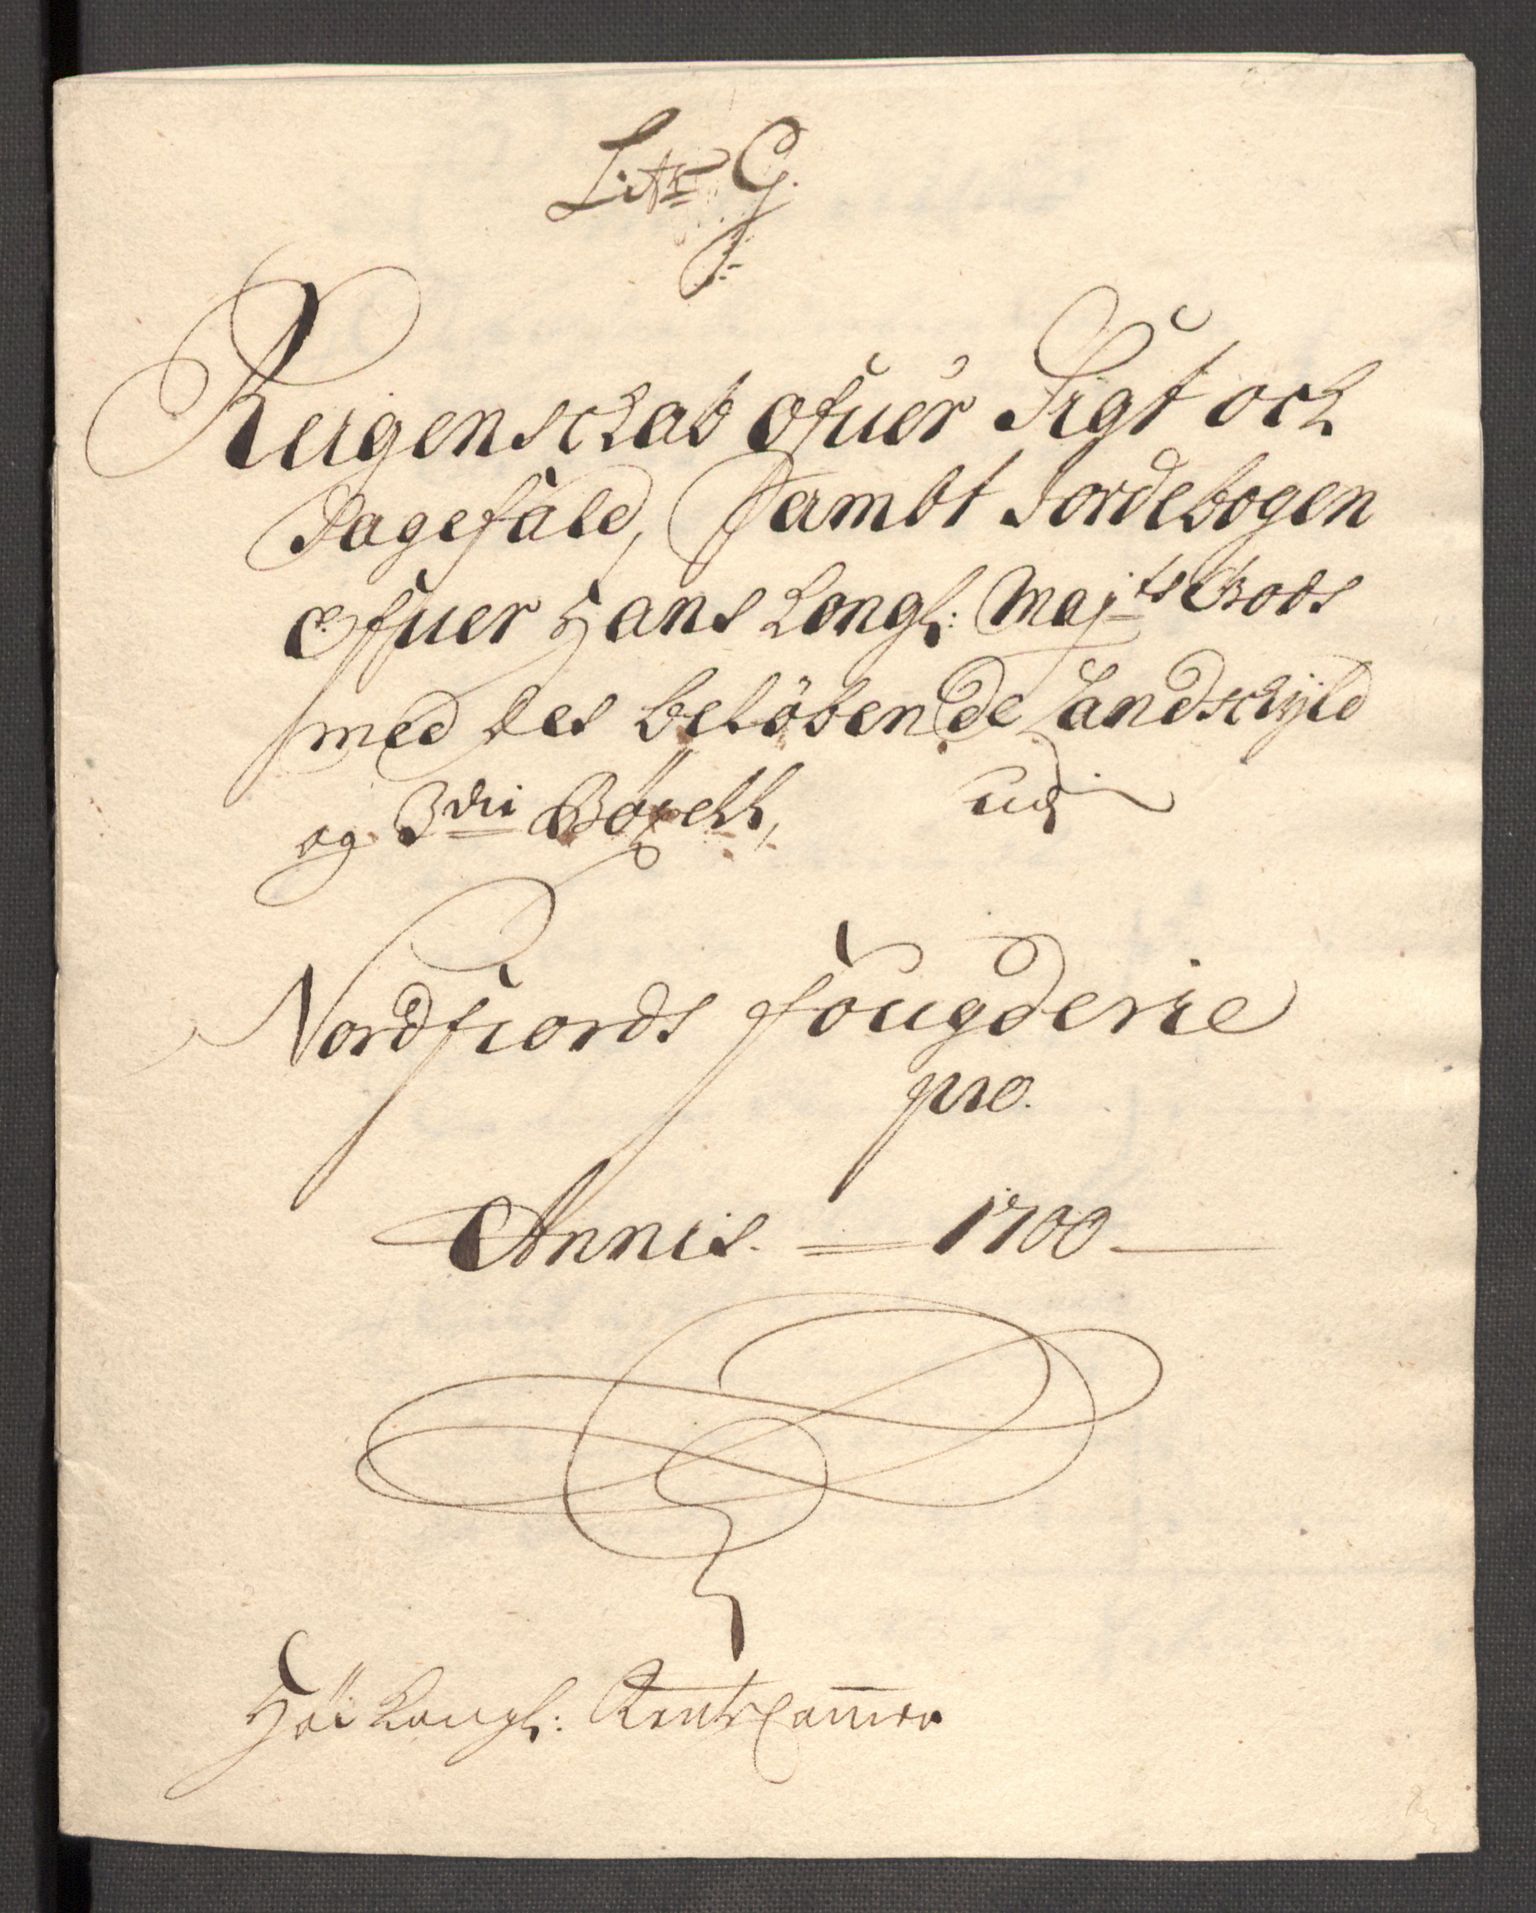 Litr G.
Reigenschab ofuer Sigt och
Sagefald, Sambt Jordebogen
ofuer Hans Kongl: Maj:ts Gods
med des belöbende Landschÿld
og 3die Böxell, udj
Nordfiords fougderie
pro.
Annis. 1700
Höi Kongl: Rente Cammer